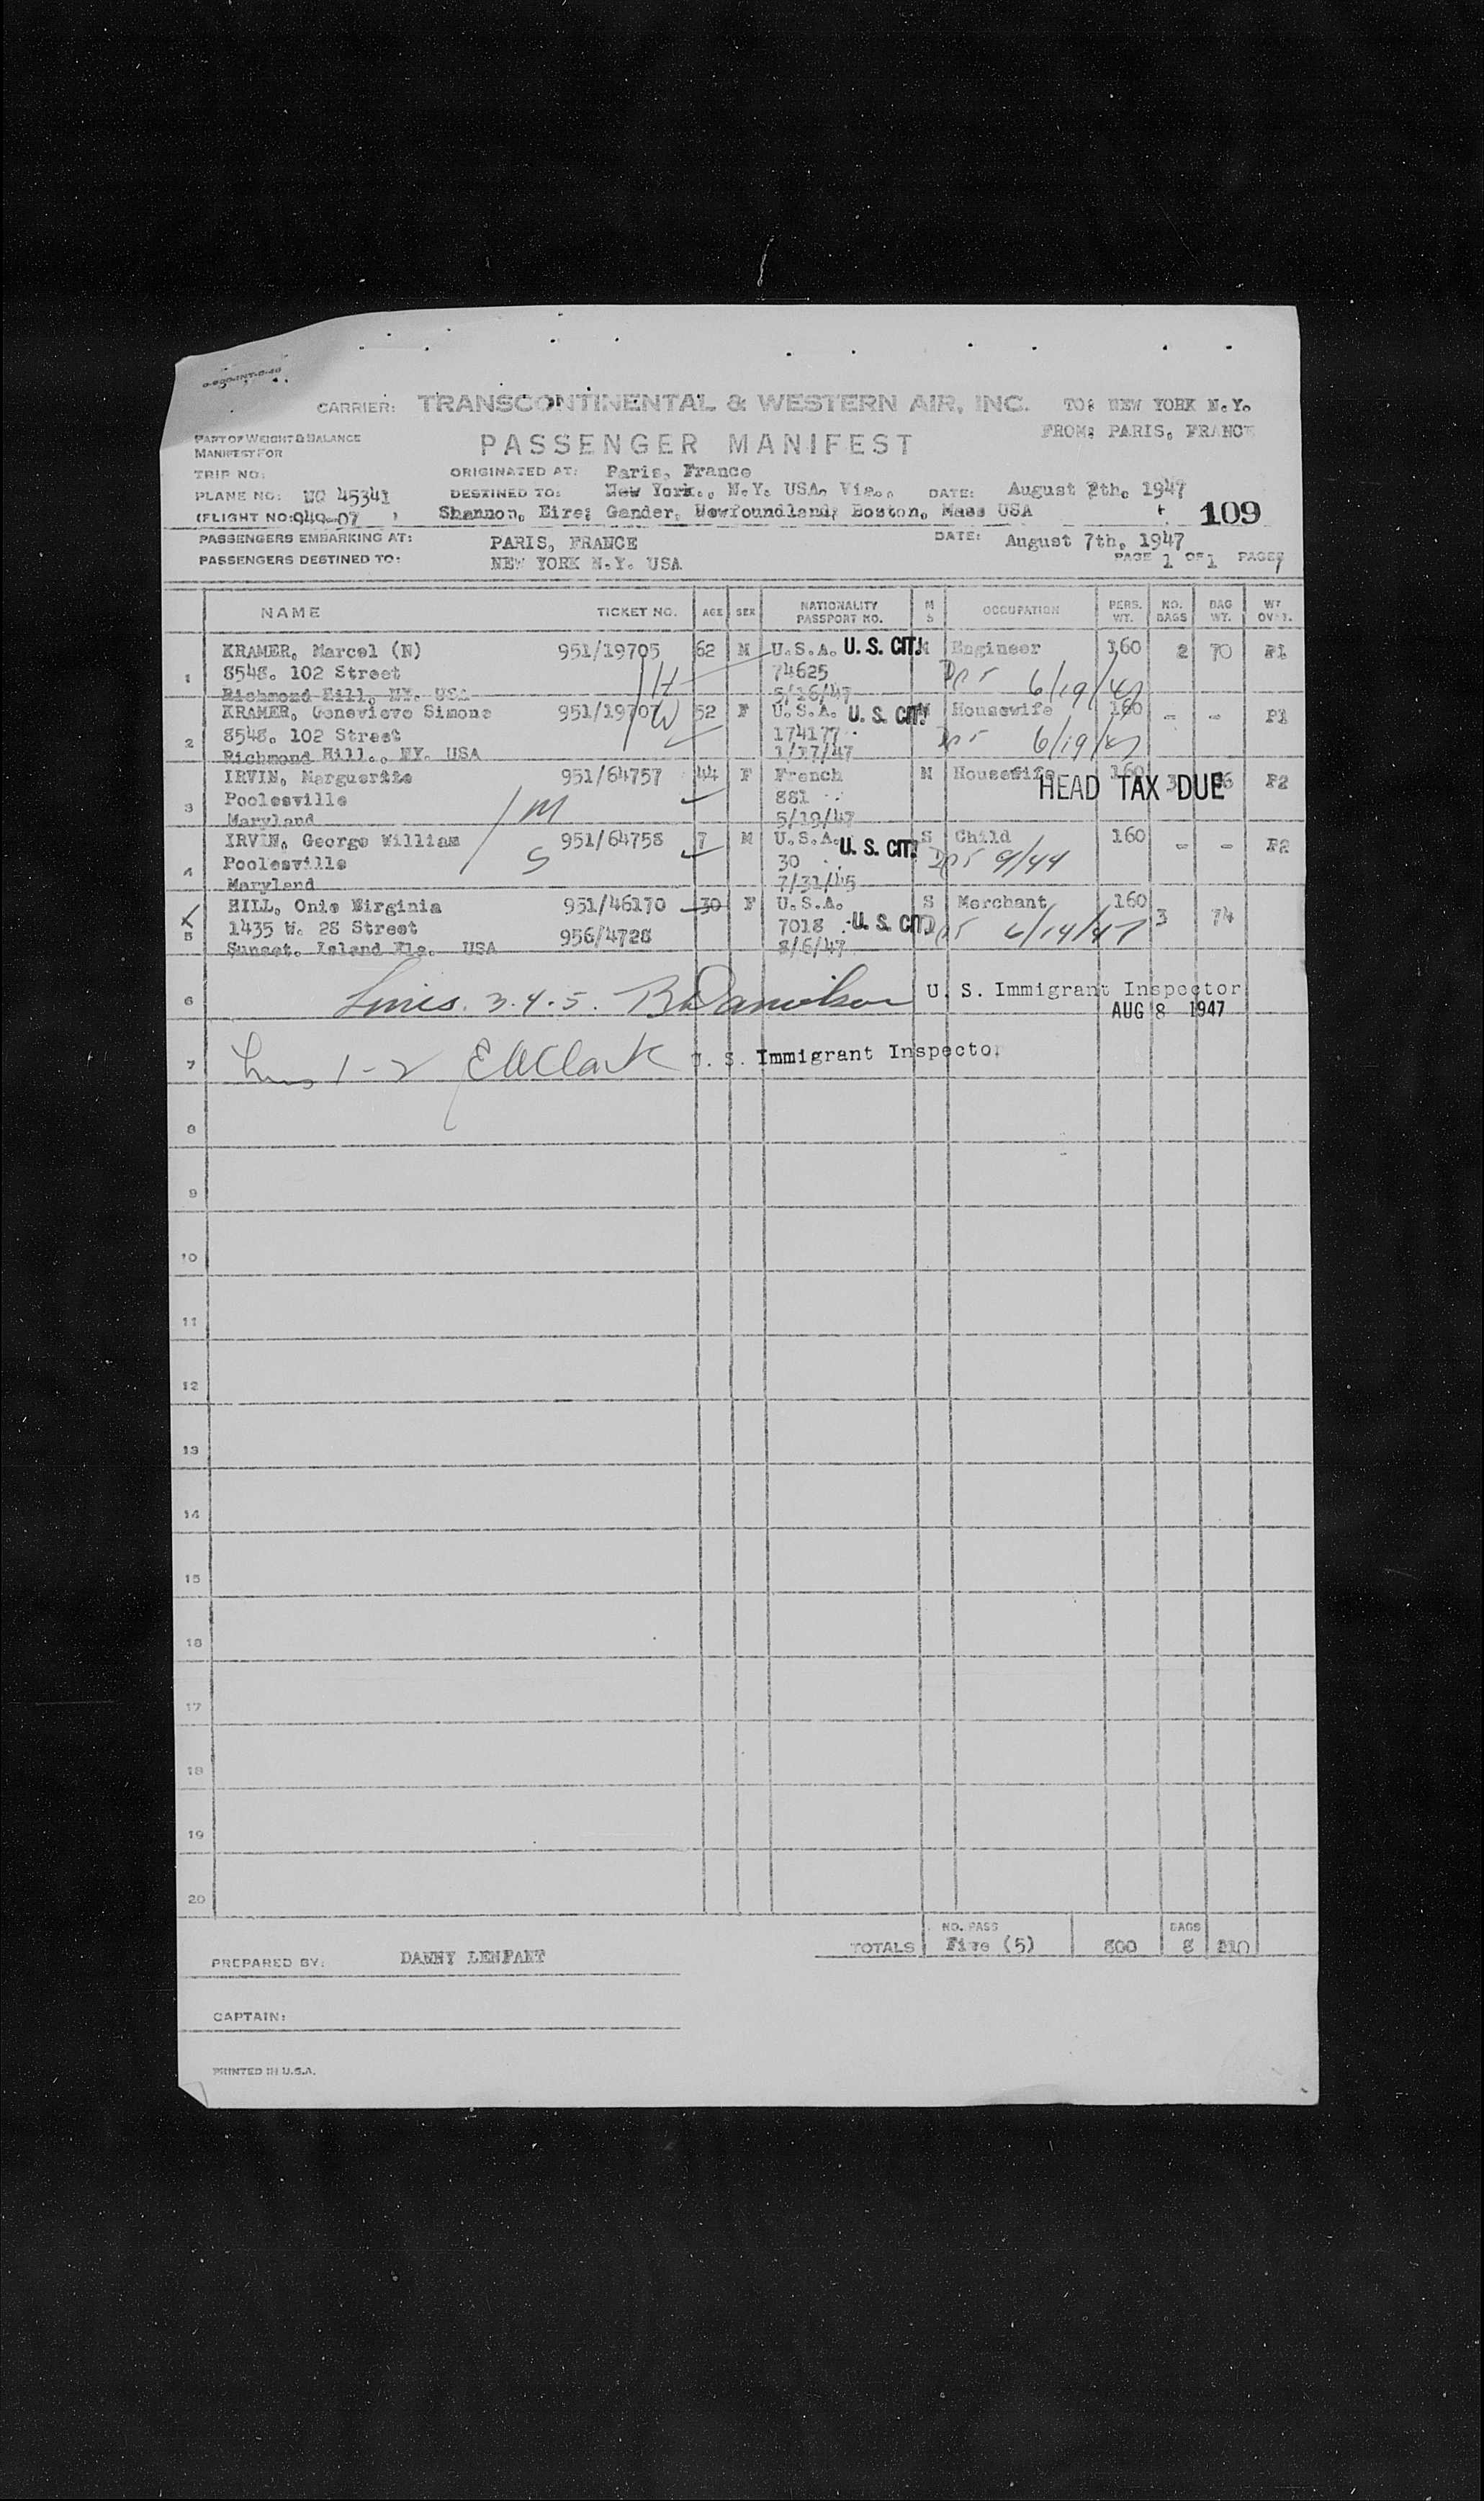 CARRIER: TRANSCONTINENTAL & WESTERN AIR, INC. TO: NEW YORK N.Y.
PART OF WEIGHT & BALANCE MANIFEST FOR
PASSENGER MANIFEST FROM: PARIS, FRANCE
TRIP NO: ORIGINATED AT: Paris, France
PLANE NO: NC 45341 DESTINED TO: New York., N.Y. USA, Via., DATE: August 7th, 1947
(FLIGHT NO: 949-07 ) Shannon, Eire; Gander, Newfoundland; Boston, Mass USA 109
PASSENGERS EMBARKING AT: PARIS, FRANCE DATE: August 7th, 1947
PASSENGERS DESTINED TO: NEW YORK N.Y. USA PAGE 1 OF 1 PAGES
NAME TICKET NO. AGE SEX NATIONALITY PASSPORT NO. M S OCCUPATION PERS. WT. NO. BAGS BAG WT. WT OVER.
1 KRAMER, Marcel (N) 951/19705 62 M U.S.A. U. S. CIT. M Engineer 160 2 70 P1
8548. 102 Street H 74625 6/19/47
Richmond Hill, NY. USA 5/16/47
2 KRAMER, Genevieve Simone 951/19707 W 52 F U.S.A. U. S. CIT. Housewife 160 - - P1
8548. 102 Street 174177 6/19/47
Richmond Hill., NY. USA 1/17/47
3 IRVIN, Marguerite 951/64757 44 F French M Housewife 160 3 P2
Poolesville M 881 HEAD TAX DUE
Maryland 5/19/47
4 IRVIN, George William 951/64758 7 M U.S.A. U. S. CIT. S Child 160 - - P2
Poolesville S 30 9/44
Maryland 7/31/45
5 HILL, Onie Virginia 951/46170 30 F U.S.A. S Merchant 160 3 74
1435 W. 28 Street 956/4728 7018 U. S. CIT. 6/14/47
Sunset. Island Fla. USA 8/6/47
6 Lines. 3.4.5. U. S. Immigrant Inspector
AUG 8 1947
7 1-2 E A Clark U. S. Immigrant Inspector
8
9
10
11
12
13
14
15
16
17
18
19
20
TOTALS NO. PASS Five (5) 800 BAGS 8 210
PREPARED BY: DANNY LENFANT
CAPTAIN:
PRINTED IN U.S.A.